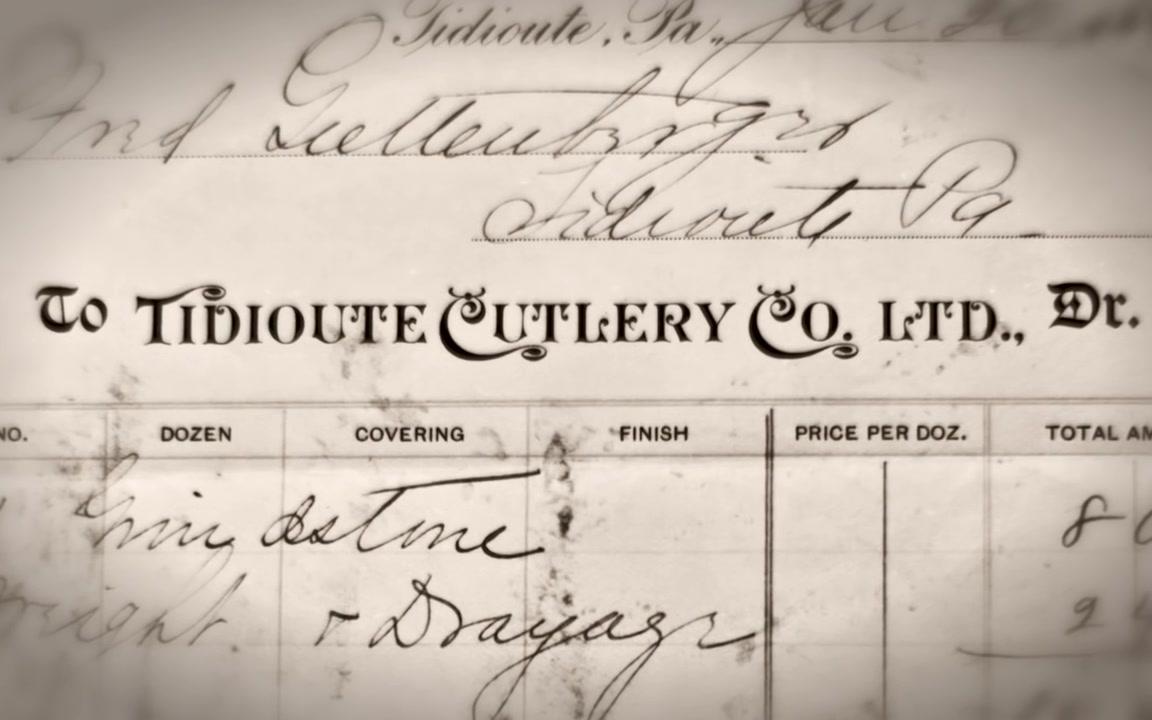 Tidioute, Pa., Jan 20
Fred
Tidioute Pa
To Tidioute Cutlery Co. Ltd., Dr.
NO. DOZEN COVERING FINISH PRICE PER DOZ. TOTAL AM
Grindstone 8
& Drayage 2